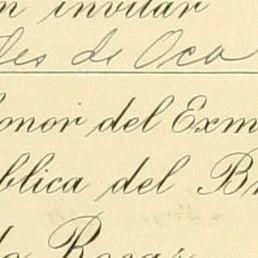 n invitar
les de Oca
onor del Exm
blica del B
do Rocas